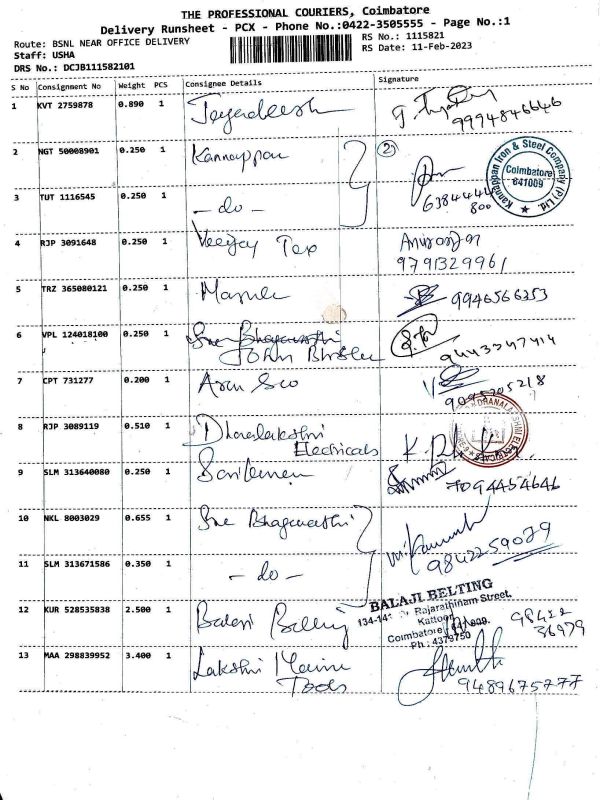 THE PROFESSIONAL COURIERS, Coimbatore
Delivery Runsheet - PCX - Phone No.:0422-3505555 - Page No.:1
Route: BSNL NEAR OFFICE DELIVERY
RS No.: 1115821
Staff: USHA
RS Date: 11-Feb-2023
DRS No.: DCJB111582101
S No Consignment No Weight PCS Consignee Details Signature
1 KVT 2759878 0.890 1
9994846646
2 NGT 50008901 0.250 1 Kannappan 2
Kannappan Iron & Steel Company (P) Ltd.
Coimbatore
641009
3 TUT 1116545 0.250 1 - do -
4 RJP 3091648 0.250 1 Veejay Tex
9791329961
5 TRZ 365080121 0.250 1 9946566353
6 VPL 124018100 0.250 1
9443347414
7 CPT 731277 0.200 1
8 RJP 3089119 0.510 1 Dhanalakshmi
Electricals
9 SLM 313640080 0.250 1 7094454646
10 NKL 8003029 0.655 1 Sree Bhagavathi
9842259079
11 SLM 313671586 0.350 1 - do -
BALAJI BELTING
Rajarathinam Street,
Kattoor
Coimbatore
Ph : 4379750
12 KUR 528535838 2.500 1 98422
36979
13 MAA 298839952 3.400 1 Lakshmi
Tools
9489675777